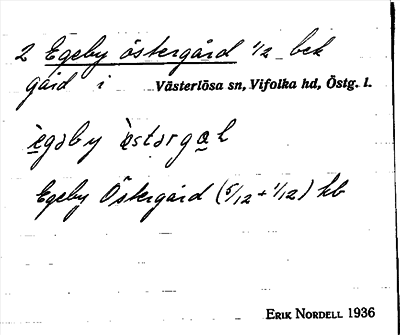 2 Egeby östergård 1/2 bek
gård i Västerlösa sn, Vifolka hd, Östg. l.
ègəby ὲstərgɑ l
Egeby Östergård (5/12 + 1/12) kb
ERIK NORDELL 1936